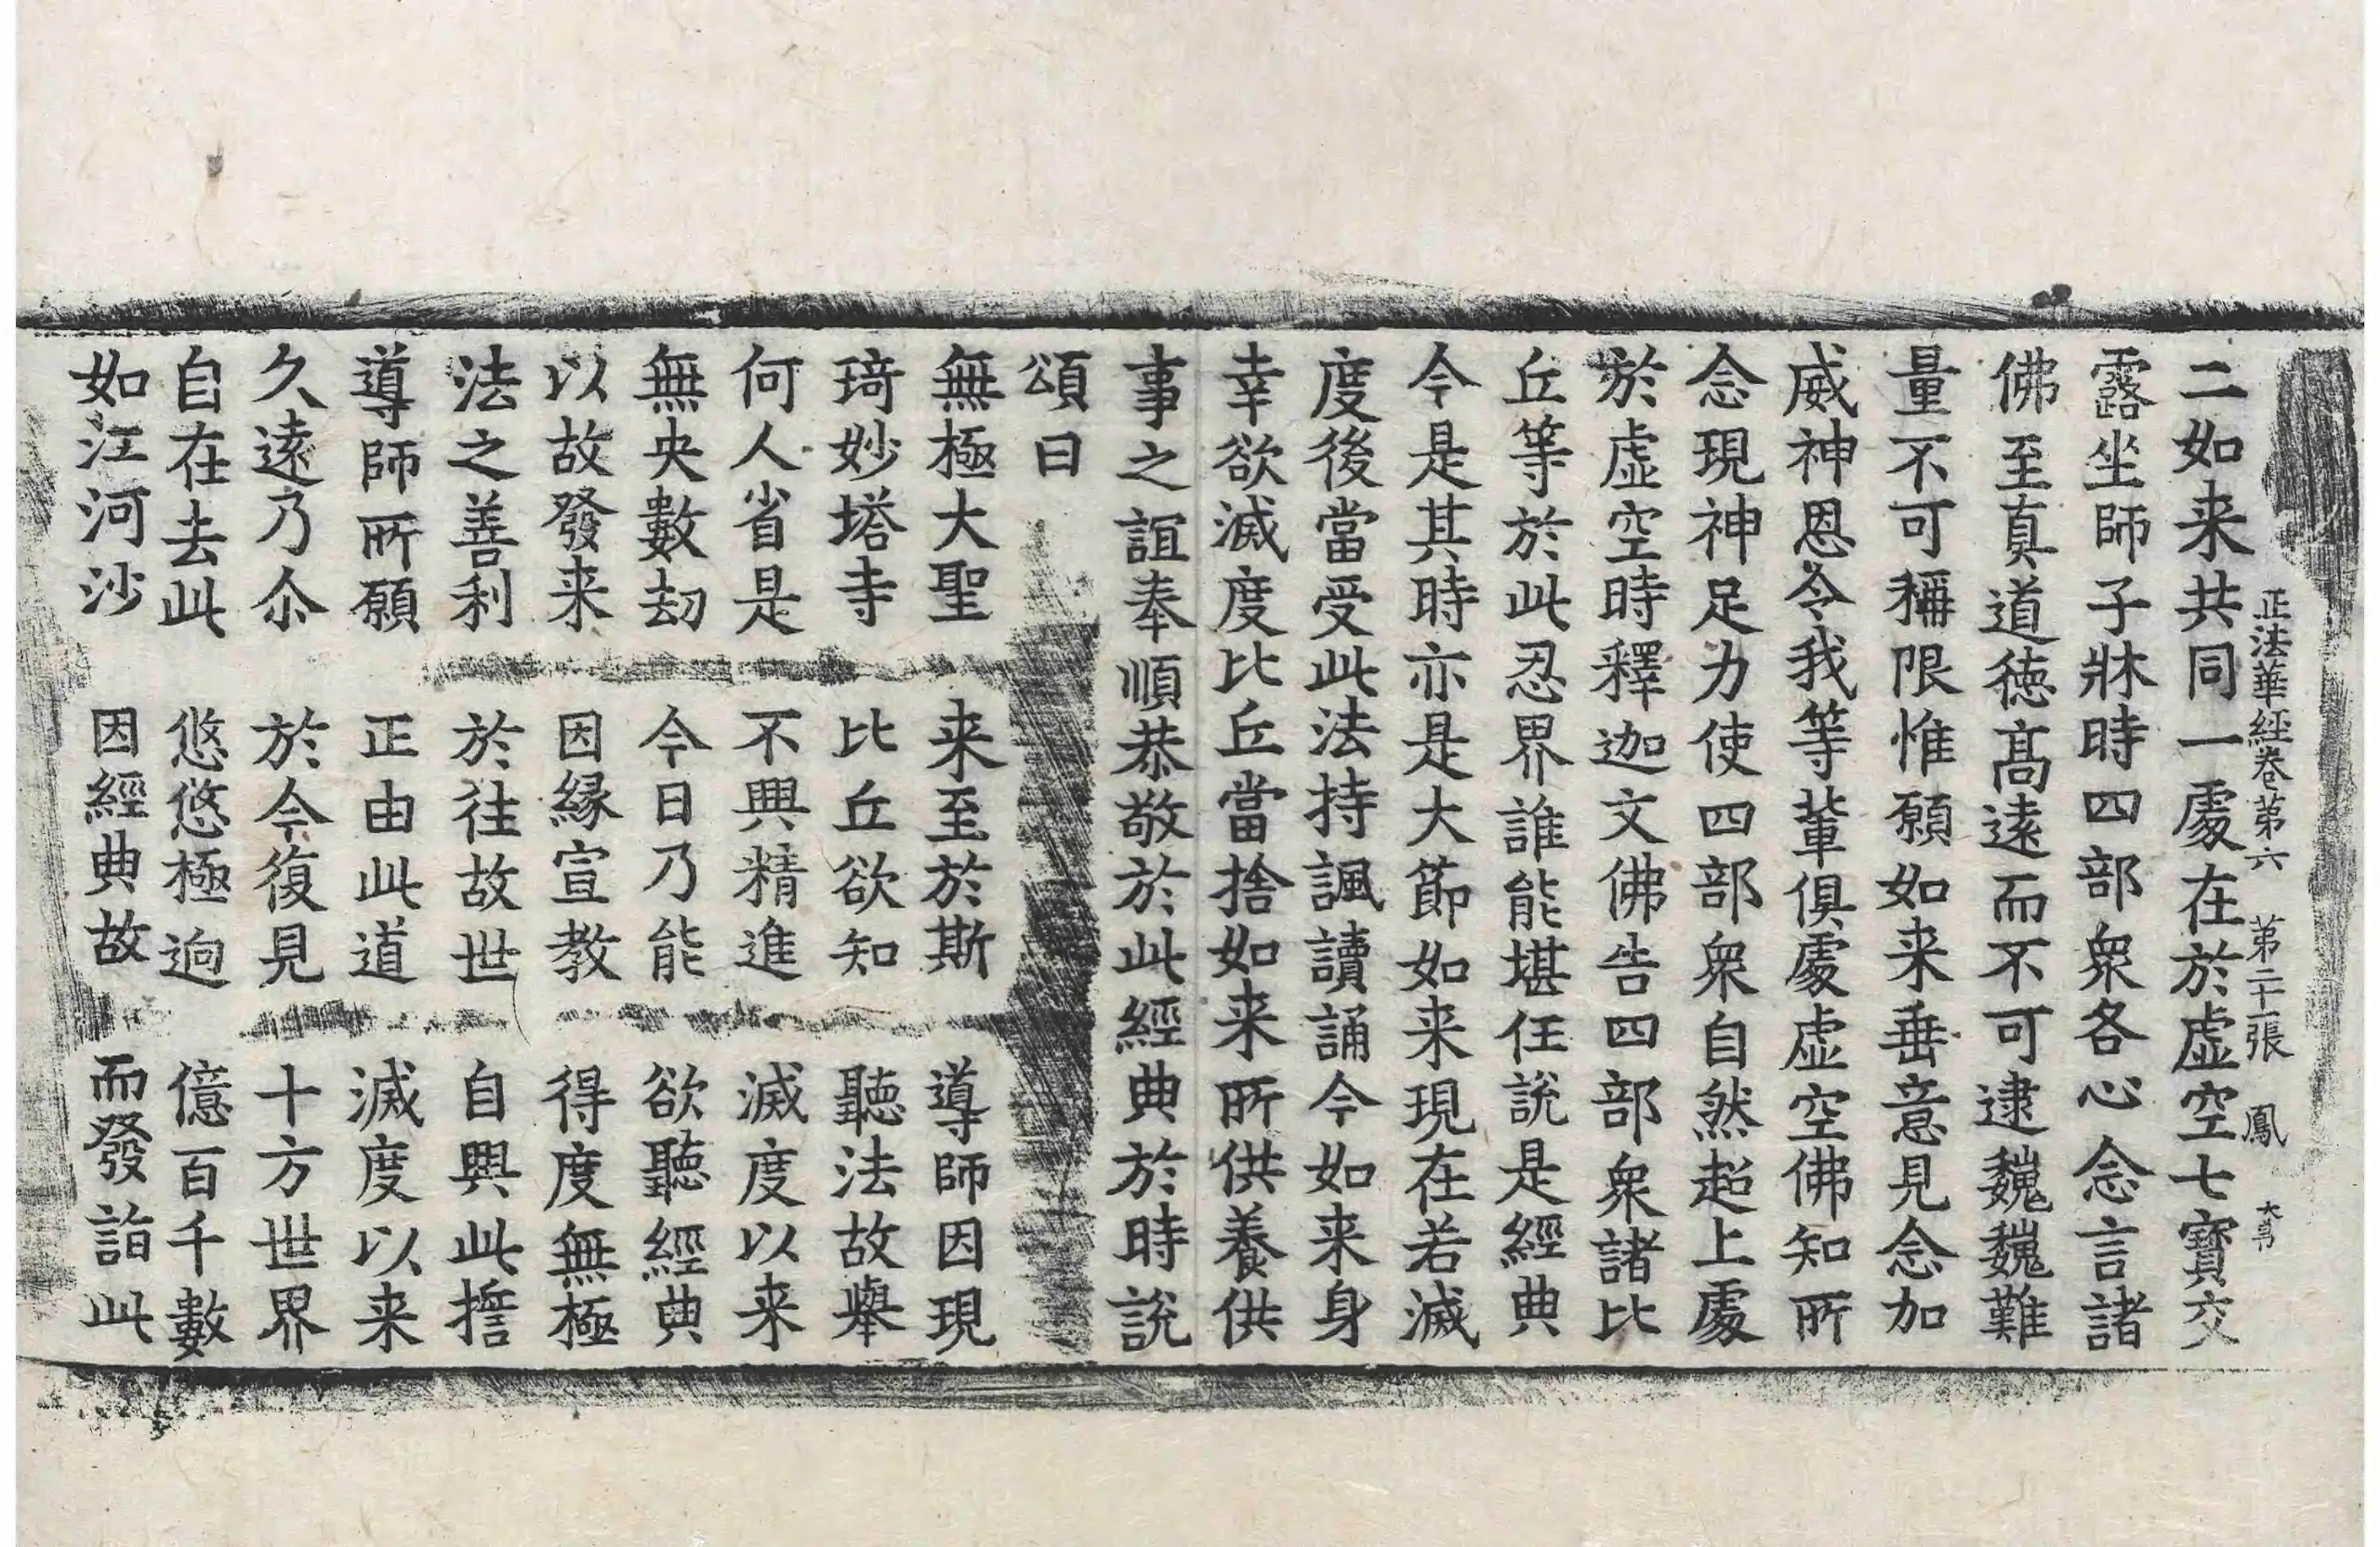 正法華經卷第六 第二十一張 鳳 大有
二如来共同一處在於虛空七寶交
露坐師子牀時四部衆各心念言諸
佛至真道德髙遠而不可逮巍巍難
量不可稱限惟願如来垂意見念加
威神恩令我等輩俱處虛空佛知所
念現神足力使四部衆自然超上處
於虛空時釋迦文佛告四部衆諸比
丘等於此忍界誰能堪任說是經典
今是其時亦是大節如来現在若滅
度後當受此法持諷讀誦今如来身
幸欲滅度比丘當捨如来所供養供
事之誼奉順恭敬於此經典於時說
頌曰
無極大聖 来至於斯 導師因現
琦妙塔寺 比丘欲知 聽法故舉
何人省是 不興精進 滅度以来
無央數劫 今日乃能 欲聽經典
以故發来 因緣宣教 得度無極
法之善利 於往故世 自興此擔
導師所願 正由此道 滅度以来
久遠乃尒 於今復見 十方世界
自在去此 悠悠極逈 億百千數
如江河沙 因經典故 而發詣此